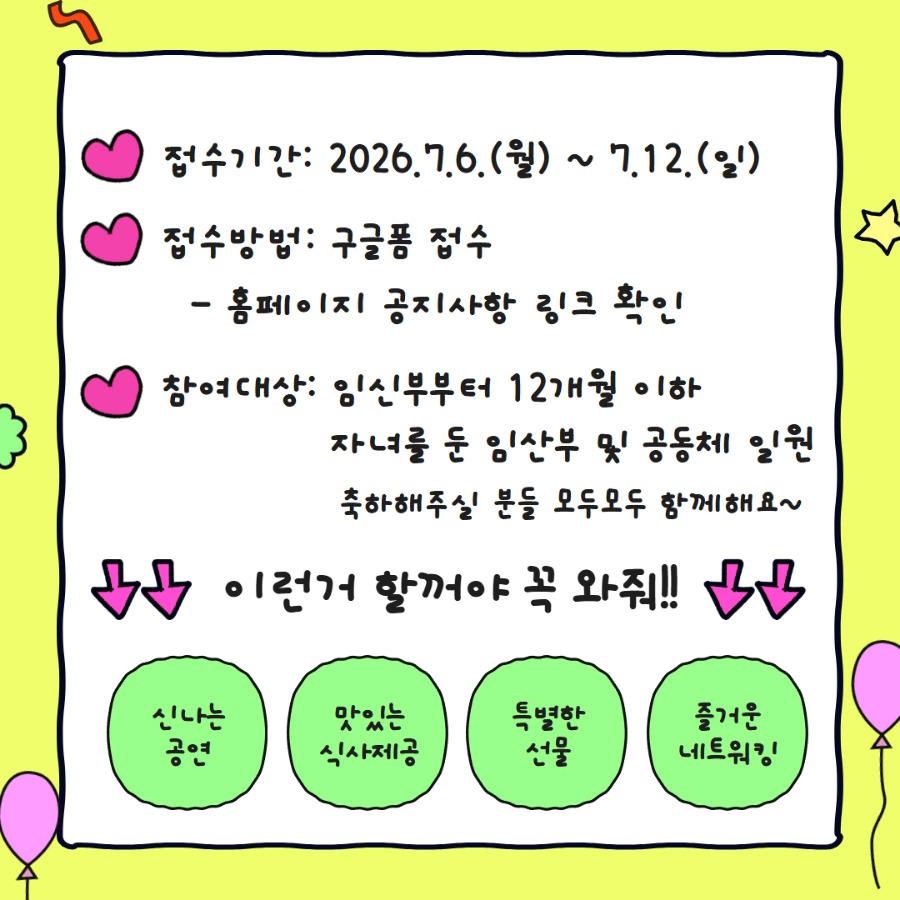 접수기간: 2026.7.6.(월) ~ 7.12.(일)
접수방법: 구글폼 접수
- 홈페이지 공지사항 링크 확인
참여대상: 임신부부터 12개월 이하
자녀를 둔 임산부 및 공동체 일원
축하해주실 분들 모두모두 함께해요~
이런거 할꺼야 꼭 와줘!!
신나는
공연
맛있는
식사제공
특별한
선물
즐거운
네트워킹